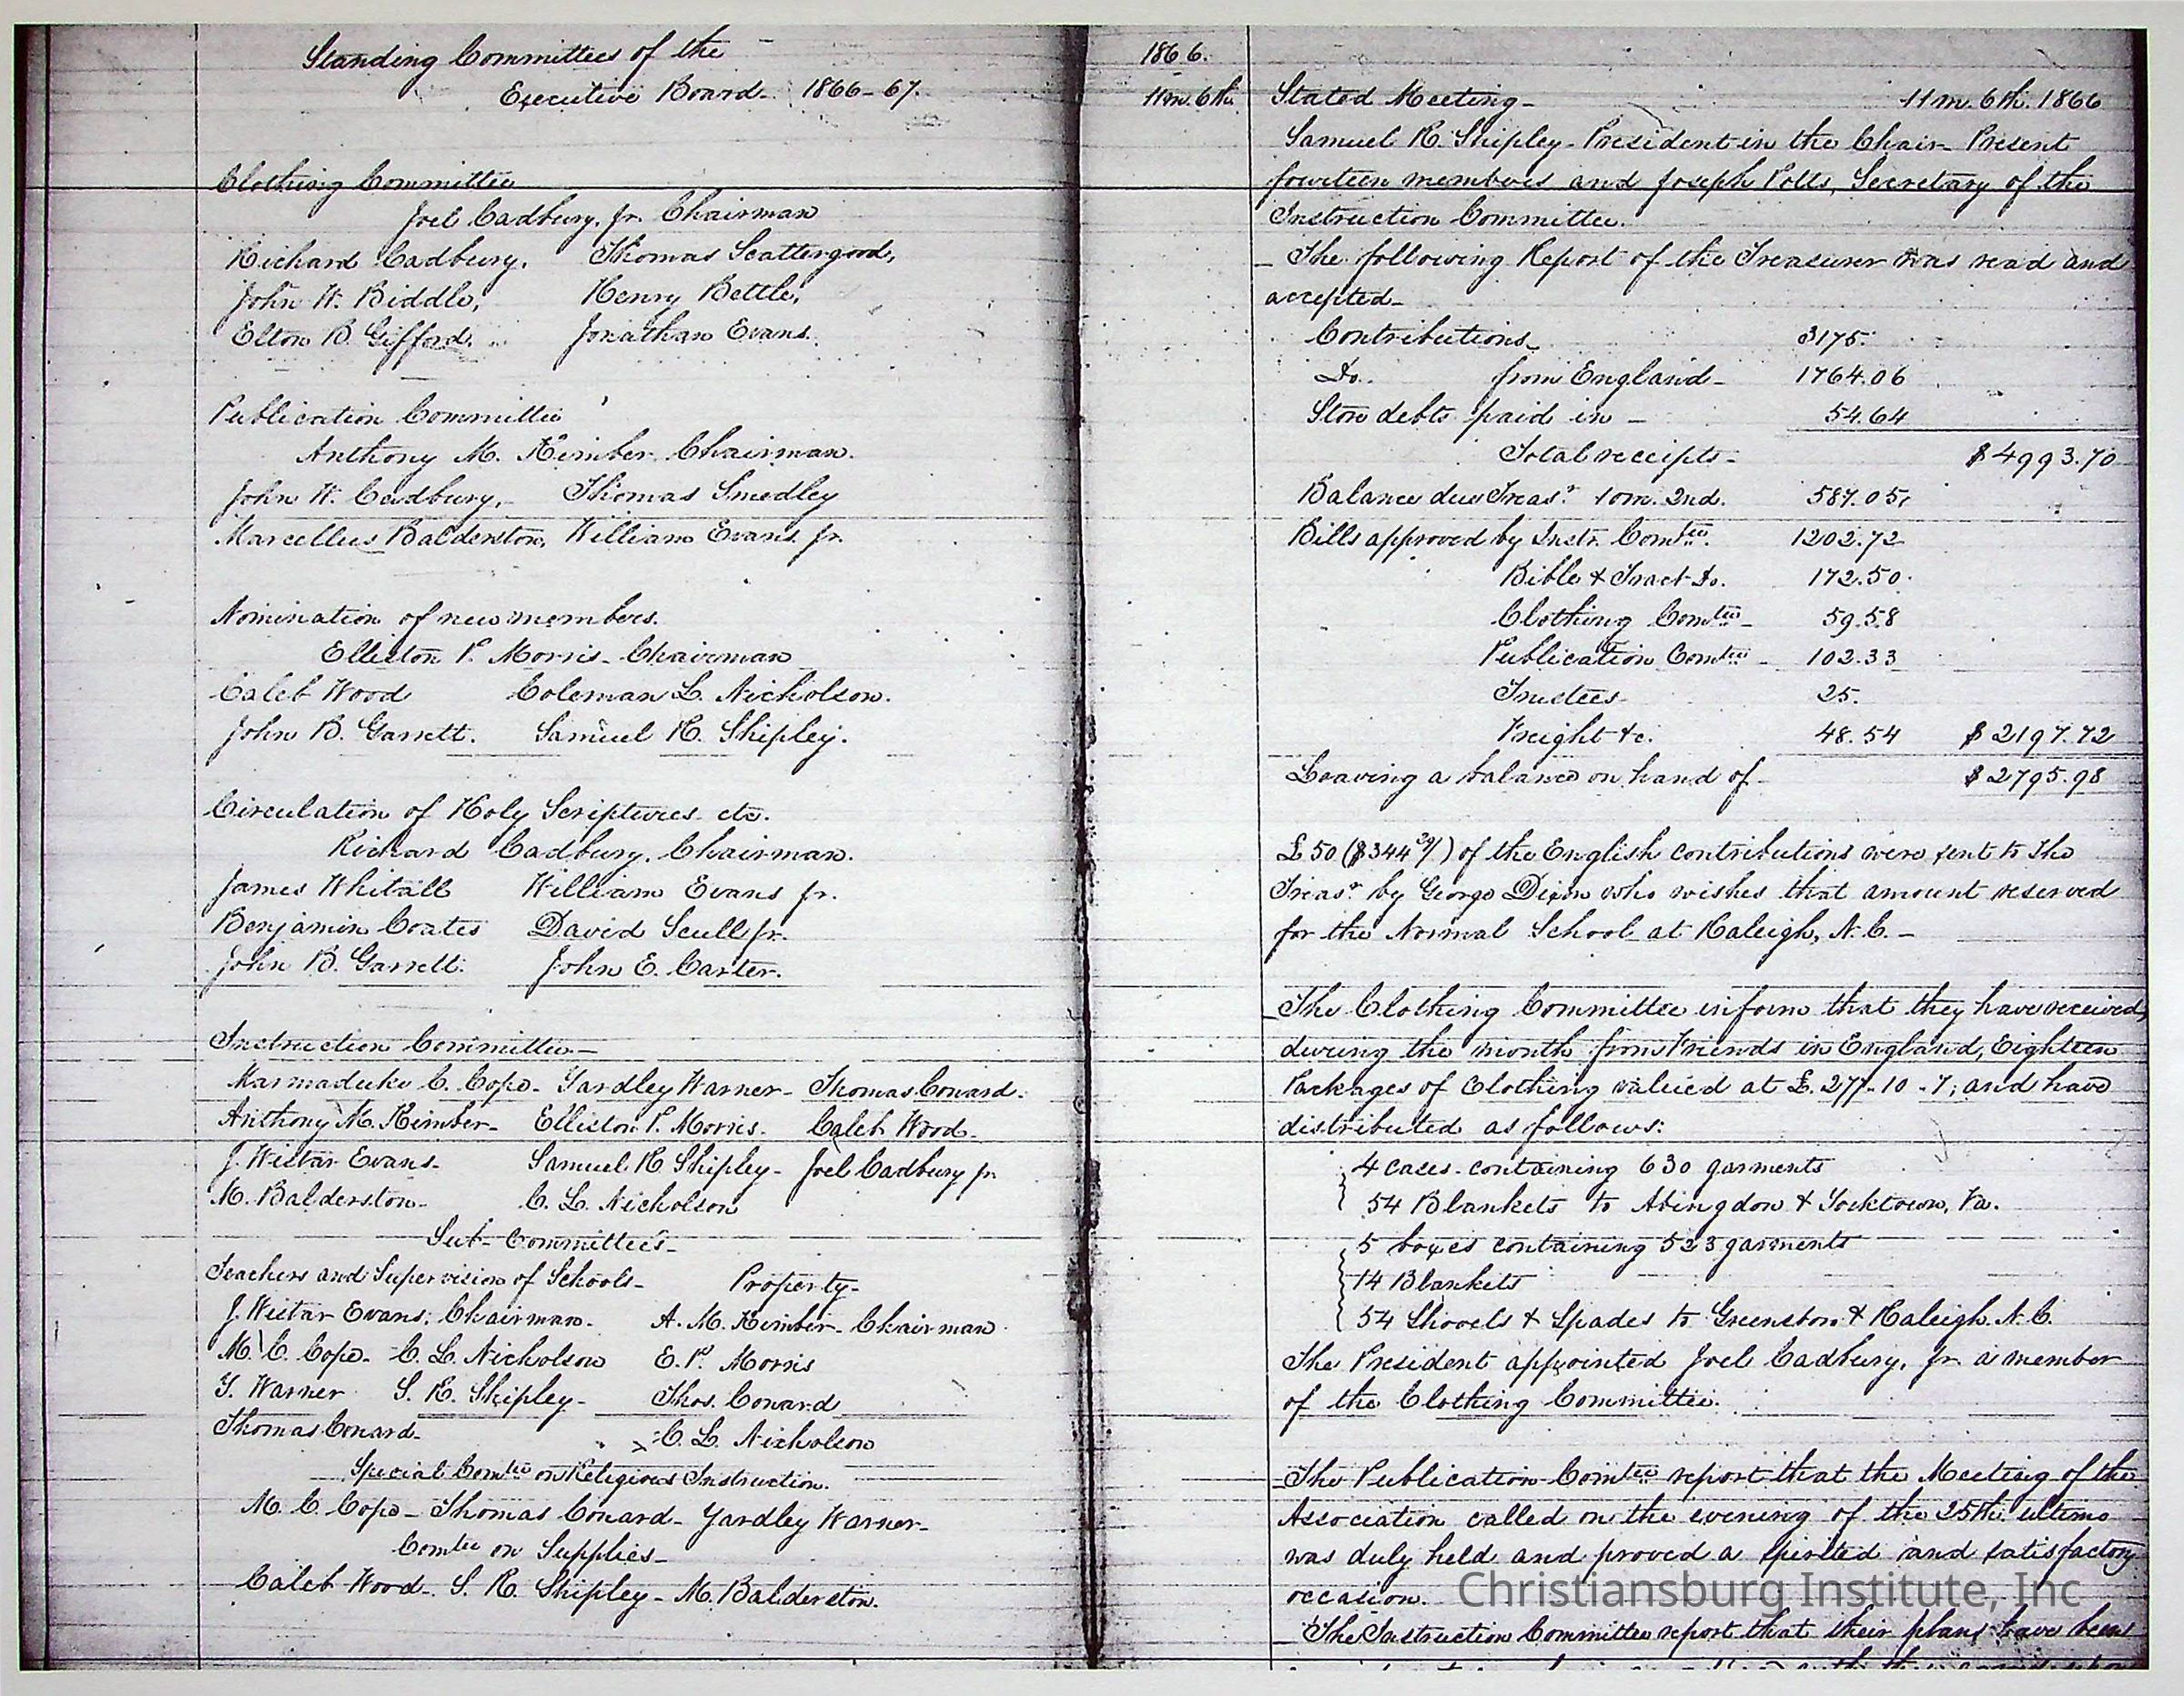 Standing Committees of the
Executive Board. 1866-67.
Clothing Committee
Joel Cadbury, Jr. Chairman
Richard Cadbury, Thomas Scattergood,
John W. Biddle, Henry Bettle,
Elton B. Gifford. Jonathan Evans.
Publication Committee
Anthony M. Kimber Chairman.
John W. Cadbury, Thomas Smedley
Marcellus Balderston, William Evans Jr.
Nomination of new members.
Elliston P. Morris - Chairman
Caleb Wood Coleman L. Nicholson.
John B. Garrett. Samuel R. Shipley.
Circulation of Holy Scriptures etc.
Richard Cadbury. Chairman.
James Whitall William Evans Jr.
Benjamin Coates David Scull Jr.
John B. Garrett. John E. Carter.
Instruction Committee -
Marmaduke C. Cope - Yardley Warner - Thomas Conard.
Anthony M. Kimber - Elliston P. Morris. Caleb Wood -
J. Wistar Evans - Samuel R Shipley - Joel Cadbury Jr
M. Balderston - C. L. Nicholson
Sub-Committees -
Teachers and Supervision of Schools - Property -
J. Wistar Evans, Chairman - A. M. Kimber - Chairman
M. C. Cope - C. L. Nicholson E. P. Morris
Y. Warner S. R. Shipley - Thos. Conard
Thomas Conard - C. L. Nicholson
Special Comtee on Religious Instruction.
M. C. Cope - Thomas Conard - Yardley Warner -
Comtee on Supplies -
Caleb Wood - S. R. Shipley - M. Balderston.
1866.
11m. 6th. Stated Meeting - 11m. 6th. 1866
Samuel R. Shipley - President in the Chair - Present
fourteen members and Joseph Potts, Secretary of the
Instruction Committee.
- The following Report of the Treasurer was read and
accepted -
Contributions - 3175.
Do. from England - 1764.06
Store debts paid in - 54.64
Total receipts - $4993.70
Balance due Treasr. 10m. 2nd. 587.05
Bills approved by Instr. Comtee. 1202.72
Bible & Tract Do. 172.50.
Clothing Comtee - 59.58
Publication Comtee - 102.33
Trustees 25.
Freight &c. 48.54 $2197.72
Leaving a balance on hand of - $2795.98
£50 ($344 29/) of the English contributions were sent to the
Treasr. by George Dixon who wishes that amount reserved
for the Normal School at Raleigh, N.C. -
The Clothing Committee inform that they have received,
during the month from Friends in England, Eighteen
Packages of Clothing valued at £.277-10-7; and have
distributed as follows:
4 cases containing 630 garments
54 Blankets to Abingdon & Yorktown, Va.
5 boxes containing 523 garments
14 Blankets
54 Shovels & Spades to Greensboro & Raleigh. N.C.
The President appointed Joel Cadbury, Jr. a member
of the Clothing Committee.
The Publication Comtee report that the Meeting of the
Association called on the evening of the 25th. ultimo
was duly held and proved a spirited and satisfactory
occasion.
Christiansburg Institute, Inc
- The Instruction Committee report that their plans have been